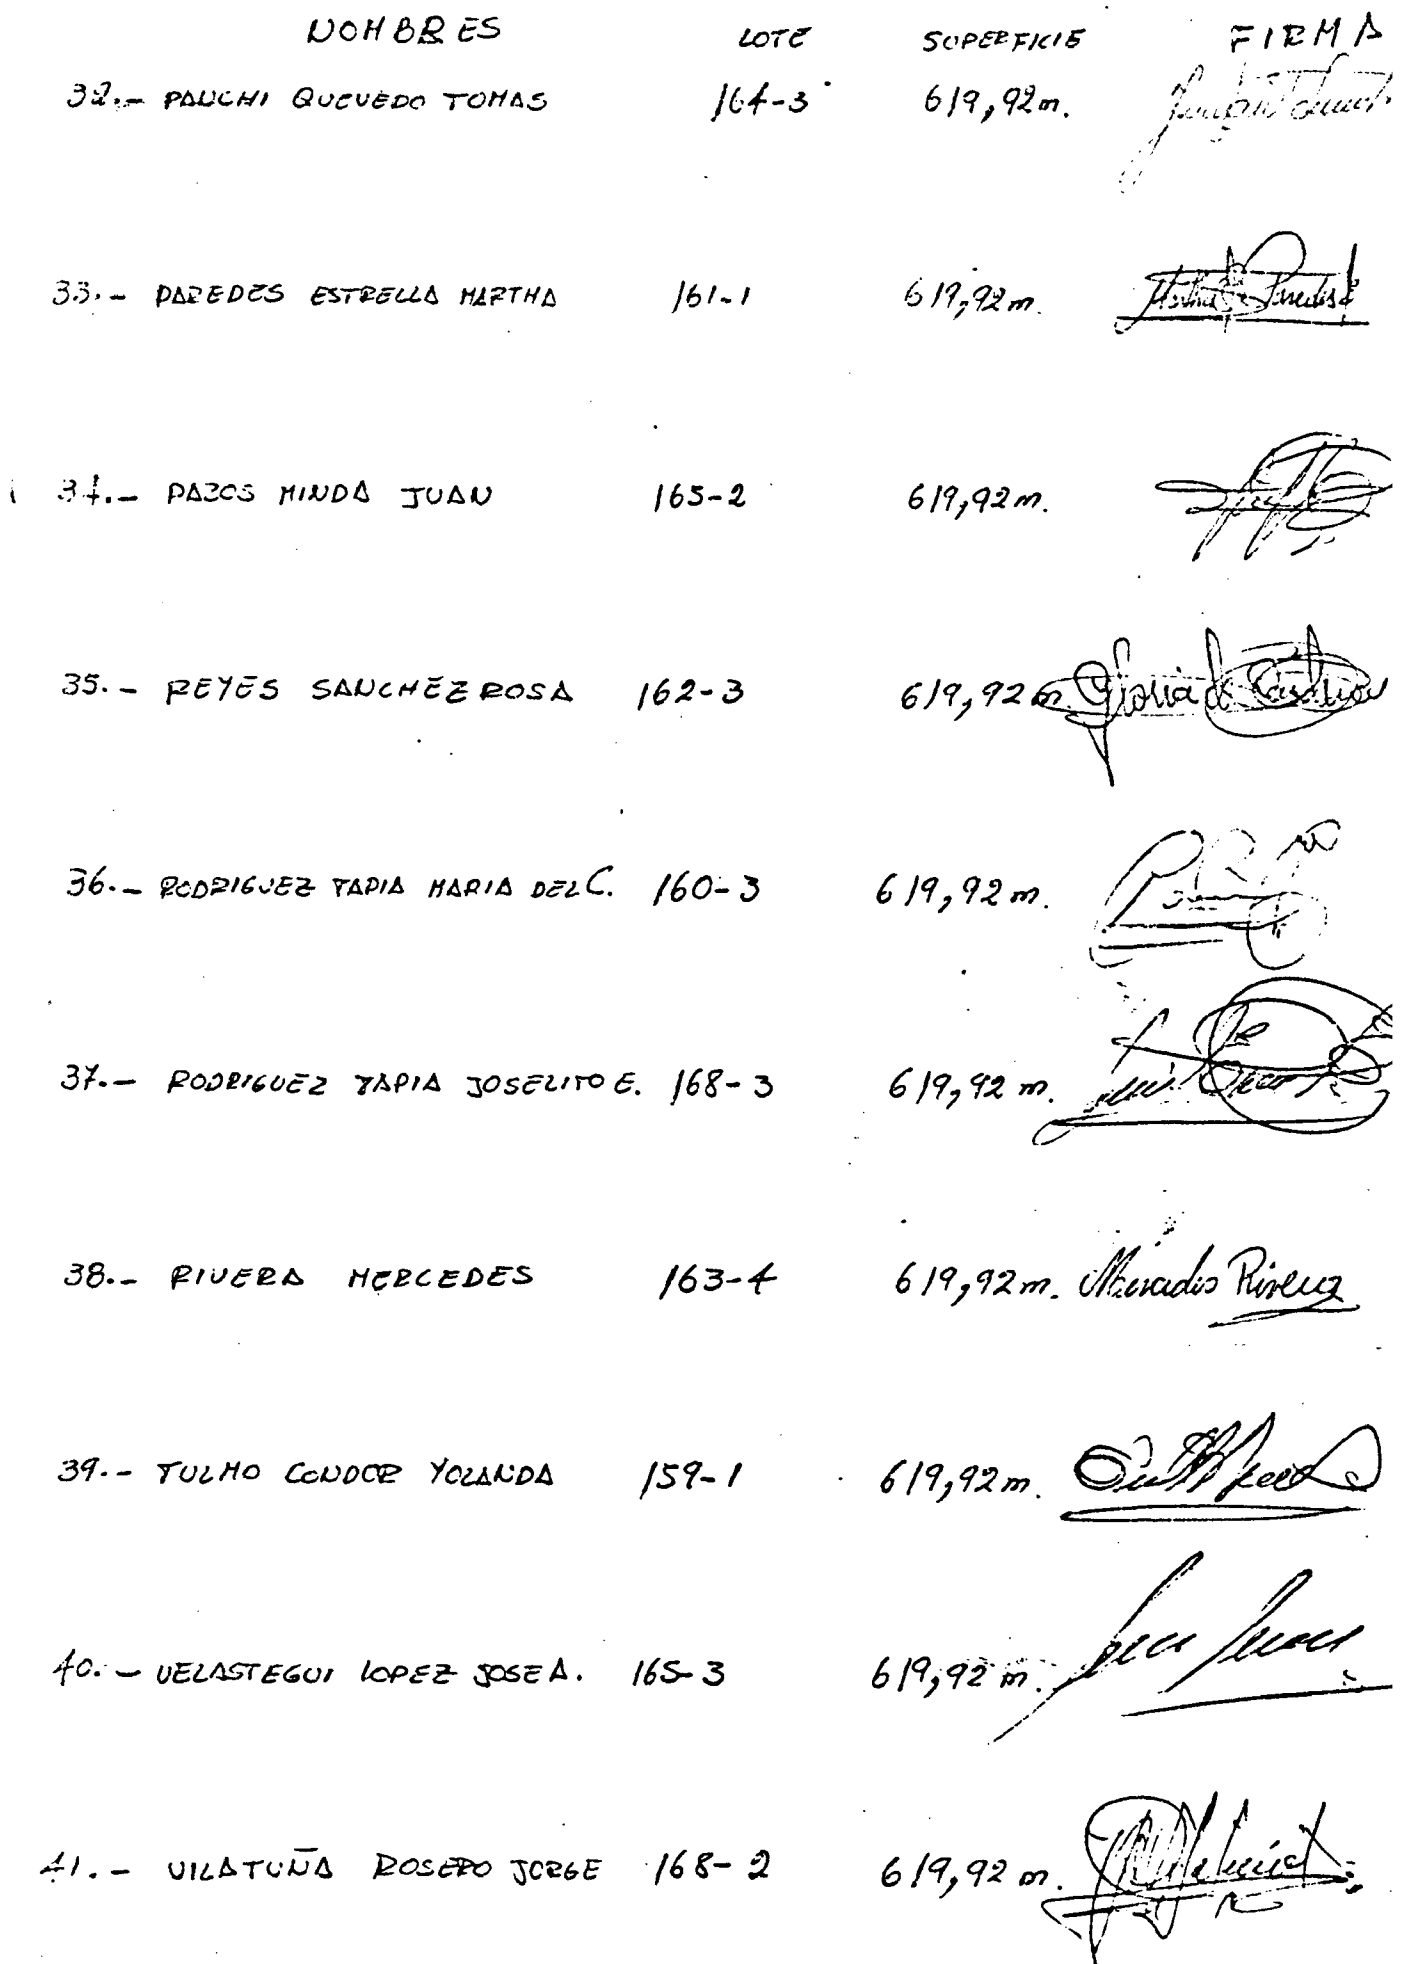 NOMBRES LOTE SUPERFICIE FIRMA
32.- PAUCHI QUEVEDO TOMAS 164-3 619,92m.
33.- PAREDES ESTRELLA MARTHA 161-1 619,92m. Martha Paredes
34.- PAZOS MINDA JUAN 165-2 619,92m.
35.- REYES SANCHEZ ROSA 162-3 619,92m. Gloria de
36.- RODRIGUEZ TAPIA MARIA DEL C. 160-3 619,92m.
37.- RODRIGUEZ TAPIA JOSELITO E. 168-3 619,92m.
38.- RIVERA MERCEDES 163-4 619,92m. Mercedes Rivera
39.- TULMO CONDOR YOLANDA 159-1 619,92m.
40.- VELASTEGUI LOPEZ JOSE A. 165-3 619,92m.
41.- VILATUÑA ROSERO JORGE 168-2 619,92m.